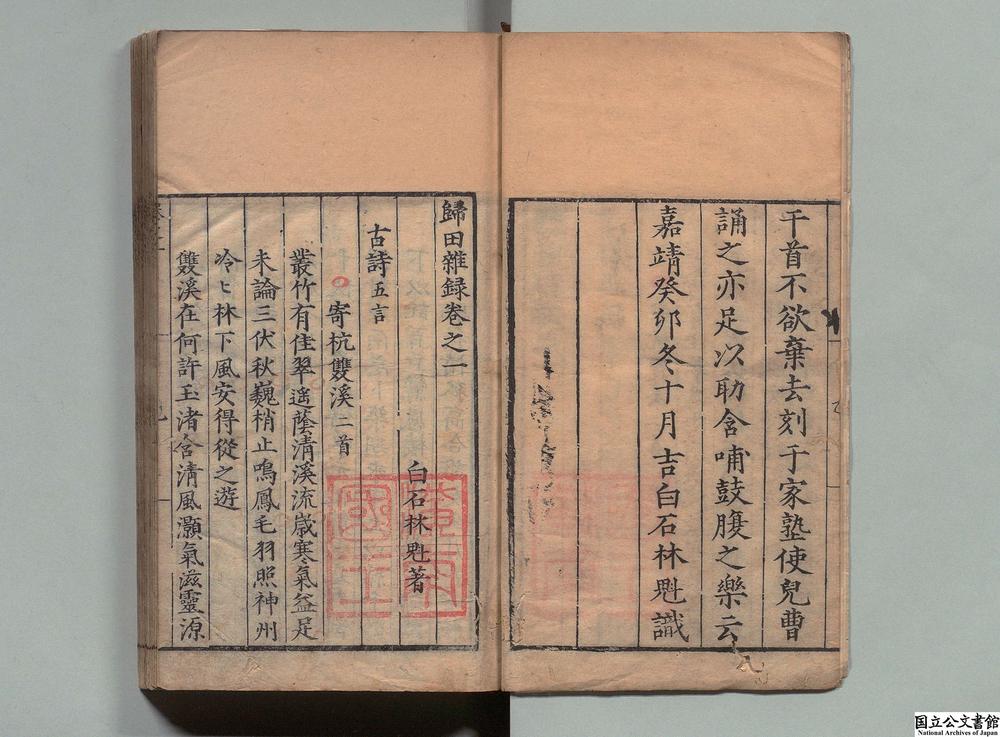 千首不欲棄去刻于家塾使兒曹
誦之亦足以助含哺鼓腹之樂云
嘉靖癸卯冬十月吉白石林魁識
歸田雜録卷之一
白石林魁著
古詩五言
寄杭雙溪二首
叢竹有佳翠遥蔭清溪流歳寒氣益足
未論三伏秋巍梢止鳴鳳毛羽照神州
冷〻林下風安得從之遊
雙溪在何許玉渚含清風灝氣滋靈源
国立公文書館
National Archives of Japan